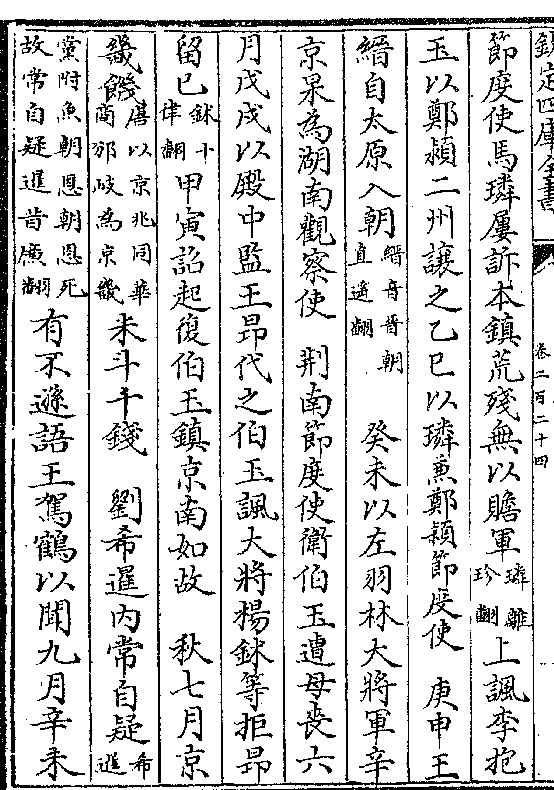 欽定四庫全書
卷二百二十四
節度使馬璘屢訴本鎮荒殘無以贍軍璘離珍翻上諷李抱
玉以鄭潁二州讓之乙巳以璘兼鄭潁節度使　庚申王
縉自太原入朝縉音晉朝直遥翻　癸未以左羽林大將軍辛
京杲為湖南觀察使　荆南節度使衛伯玉遭母喪六
月戊戌以殿中監王昂代之伯玉諷大將楊鉥等拒昂
留已鉥十律翻甲寅詔起復伯玉鎮京南如故　秋七月京
畿饑唐以京兆同華商邠岐為京畿米斗千錢　劉希暹内常自疑希暹
黨附魚朝恩朝恩死故常自疑暹昔廉翻有不遜語王駕鶴以聞九月辛未